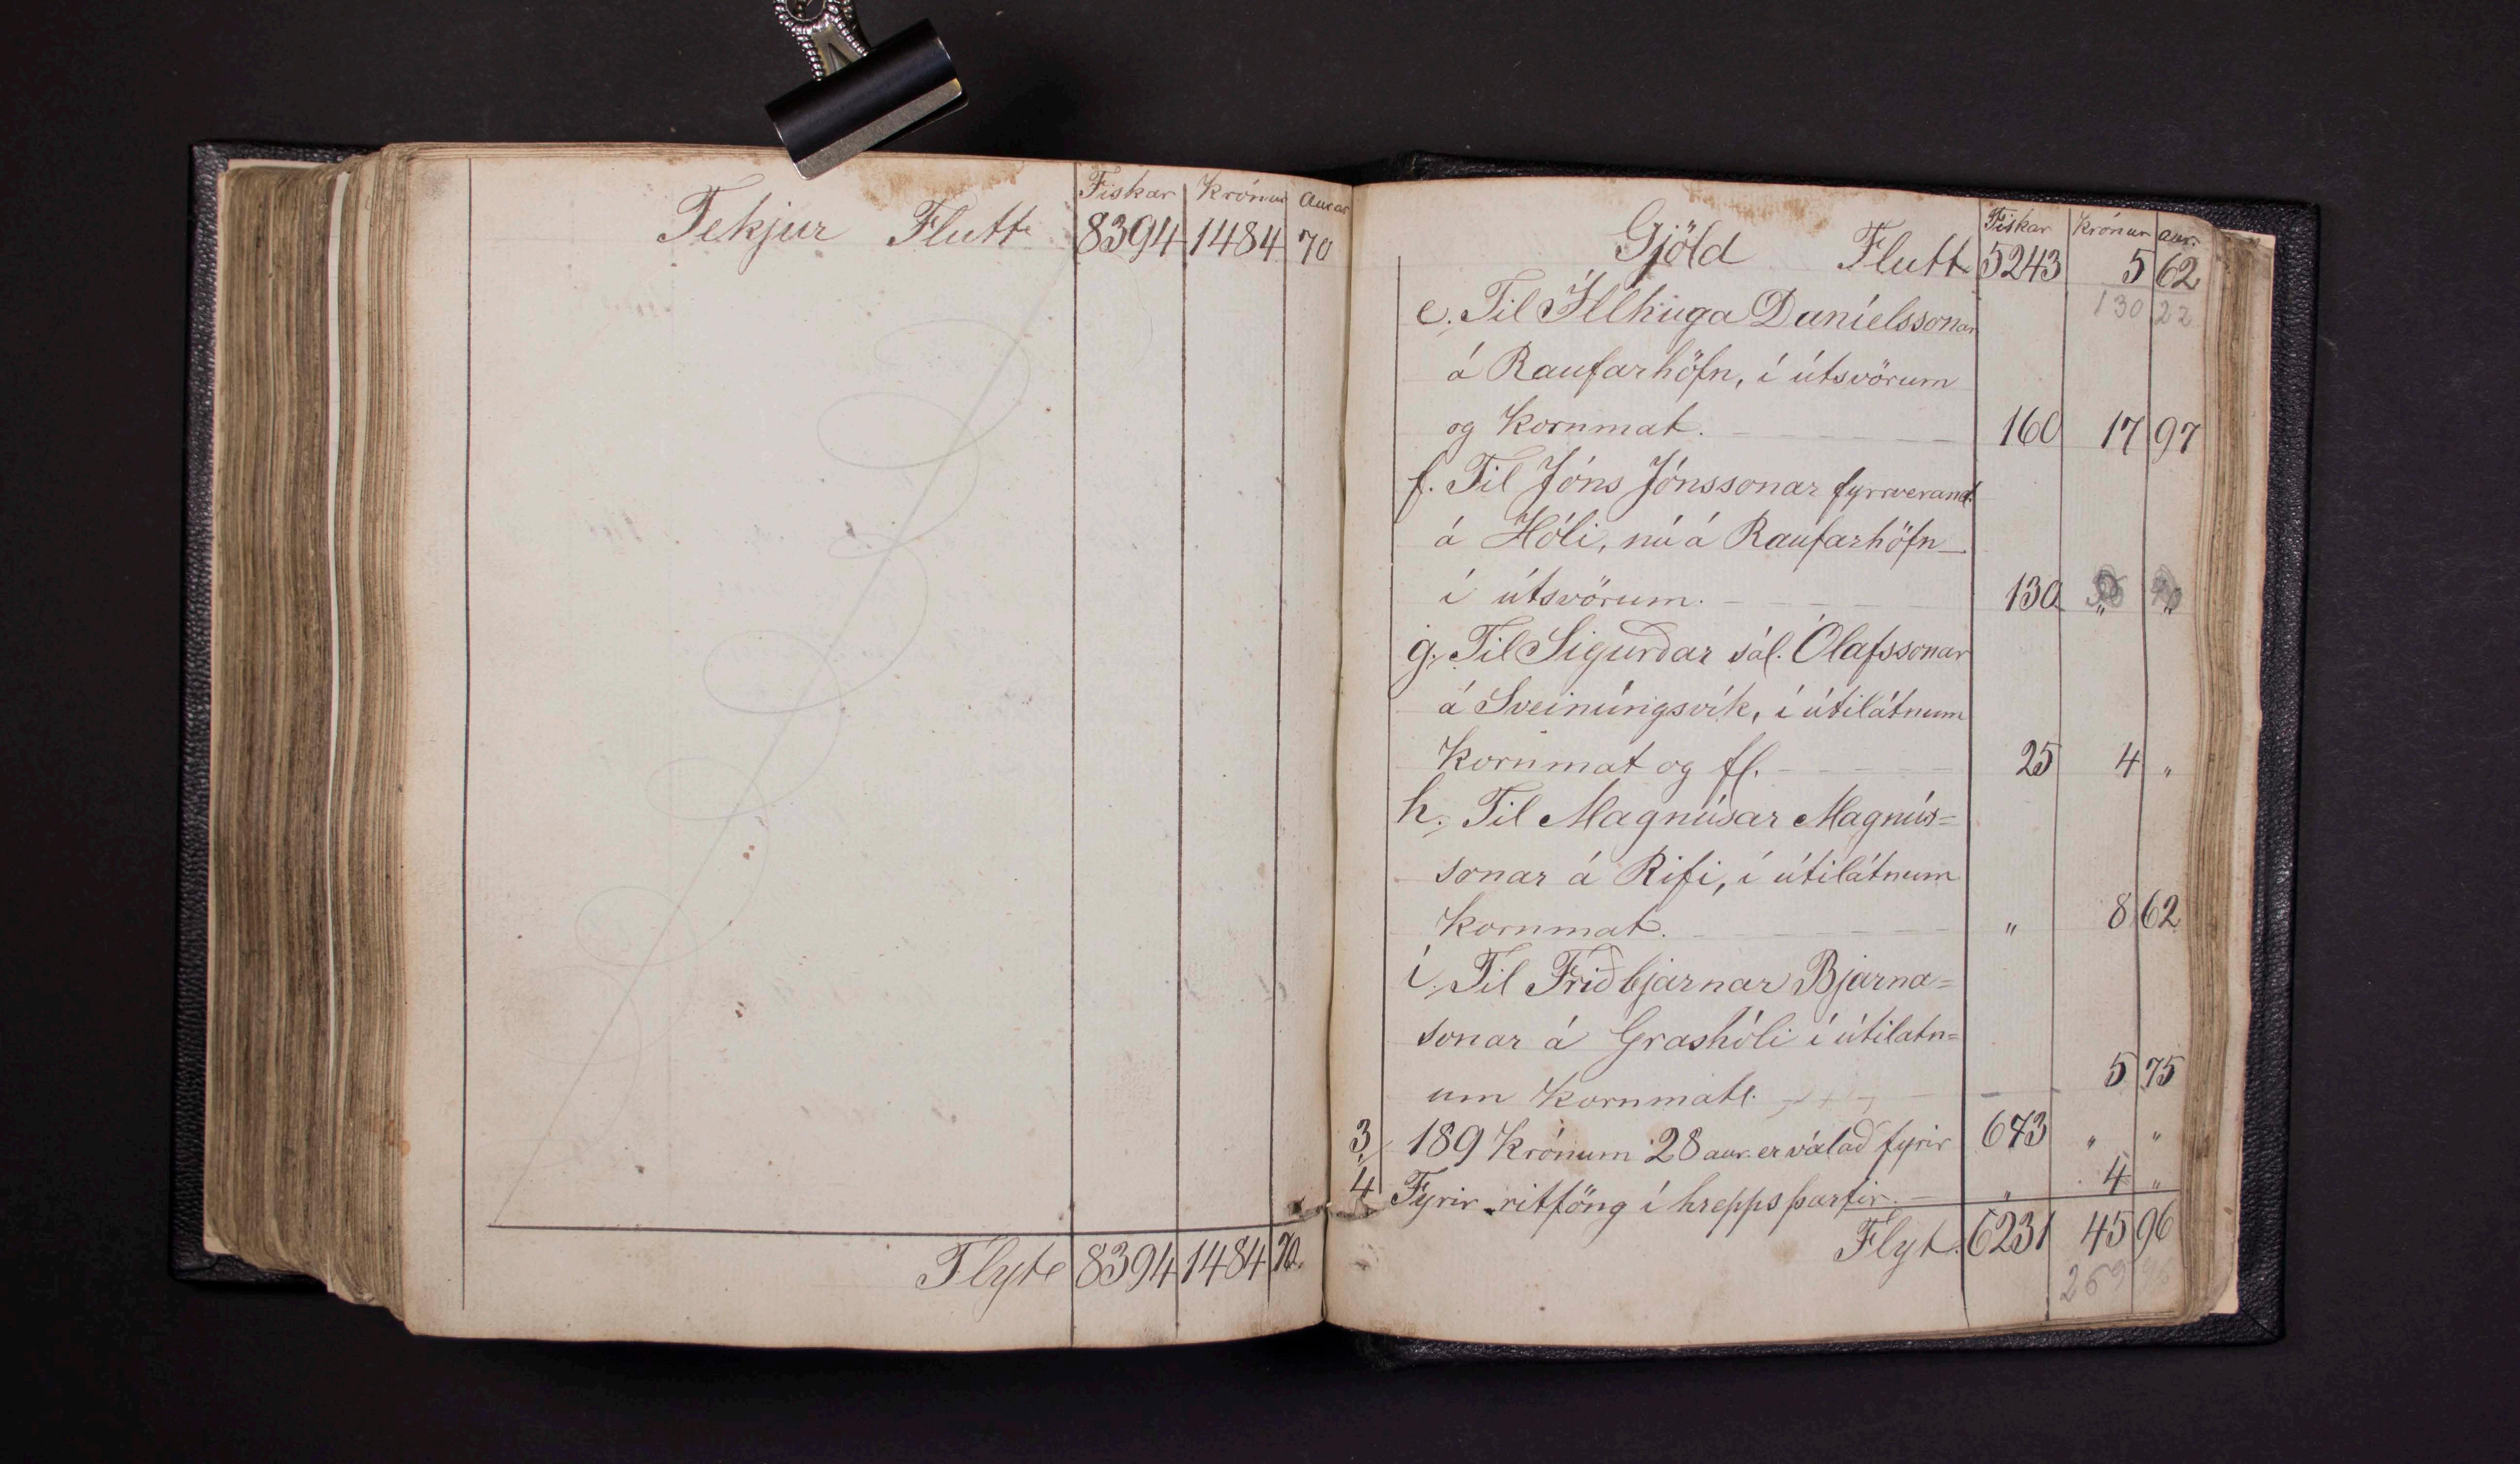 Fiskar Krónur Aurar
Tekjur Flutt 8394 1484 70
Flyt 8394 1484 70.
Fiskar Krónur aur.
Gjöld Flutt 5243 5 62
130 22
e. Til Illhuga Daníelssonar
á Raufarhöfn, í útsvörum
og Kornmat. 160 17 97
f. Til Jóns Jónssonar fyrrverand.
á Hóli, nú á Raufarhöfn
í útsvörum. 130 " "
g. Til Sigurðar sál. Ólafssonar
á Sveinúngsvík, í útilátnum
Kornmat og fl. 25 4 "
h. Til Magnúsar Magnús=
sonar á Rifi, í útilátnum
Kornmat. " 8 62
i. Til Friðbjarnar Bjarna=
sonar á Grashóli í útilatn=
um Kornmat. 5 75
3, 189 Krónum 28 aur. er válað fyrir 673 " "
4 Fyrir ritföng í hreppsþarfir. " 4 "
Flyt. 6231 45 96